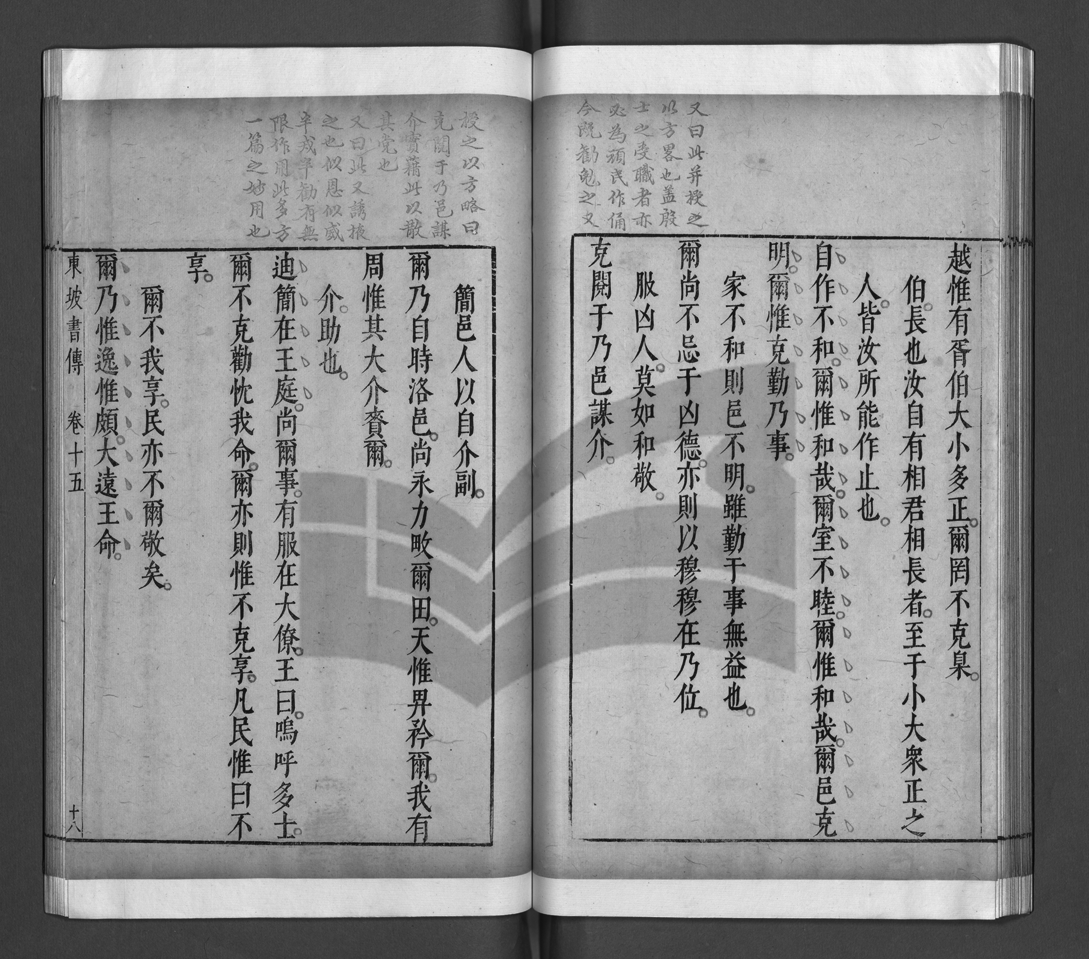 又曰此并授之
以方畧也蓋殷
士之受職者亦
必為頑民作俑
今既勸勉之又
越惟有胥伯大小多正。爾罔不克臬。
伯。長也汝自有相君相長者。至于小大衆正之
人。皆汝所能作止也。
自作不和。爾惟和哉。爾室不睦。爾惟和哉。爾邑克
明。爾惟克勤乃事。
家不和則邑不明。雖勤于事無益也。
爾尚不忌于凶德。亦則以穆穆在乃位。
服凶人。莫如和敬。
克閱于乃邑謀介。
授之以方略曰
克閱于乃邑謀
介實藉此以散
其党也
又曰此又誘掖
之也似恩似威
半戒半勸有無
限作用此多方
一篇之妙用也
簡邑人以自介副。
爾乃自時洛邑。尚永力畋爾田。天惟畀矜爾。我有
周惟其大介賚爾。
介。助也。
迪簡在王庭。尚爾事。有服在大僚。王曰。嗚呼多士。
爾不克勸忱我命。爾亦則惟不克享。凡民惟曰不
享。
爾不我享。民亦不爾敬矣。
爾乃惟逸惟頗。大遠王命。
東坡書傳 卷十五 十八